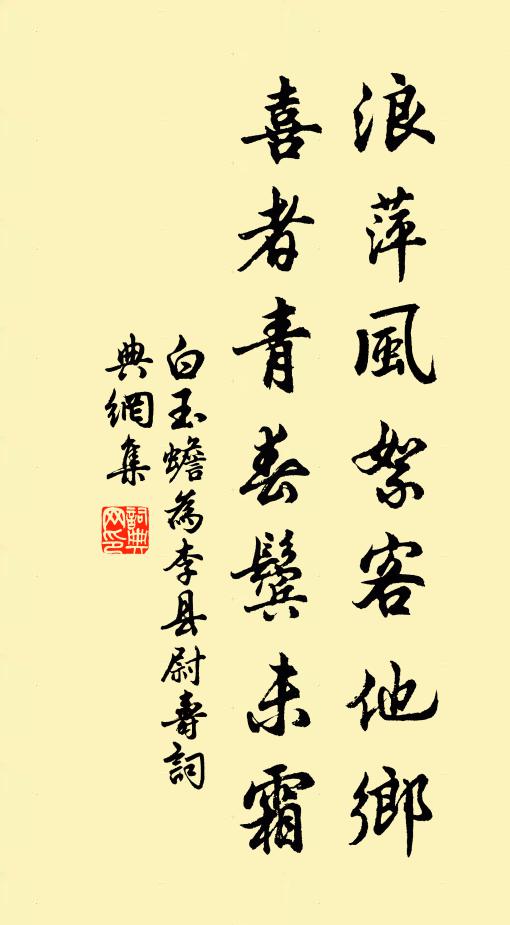 浪萍風絮客他鄉
喜者青春鬢未霜
白玉蟾為李县尉壽詞
典網集
詞典
网印